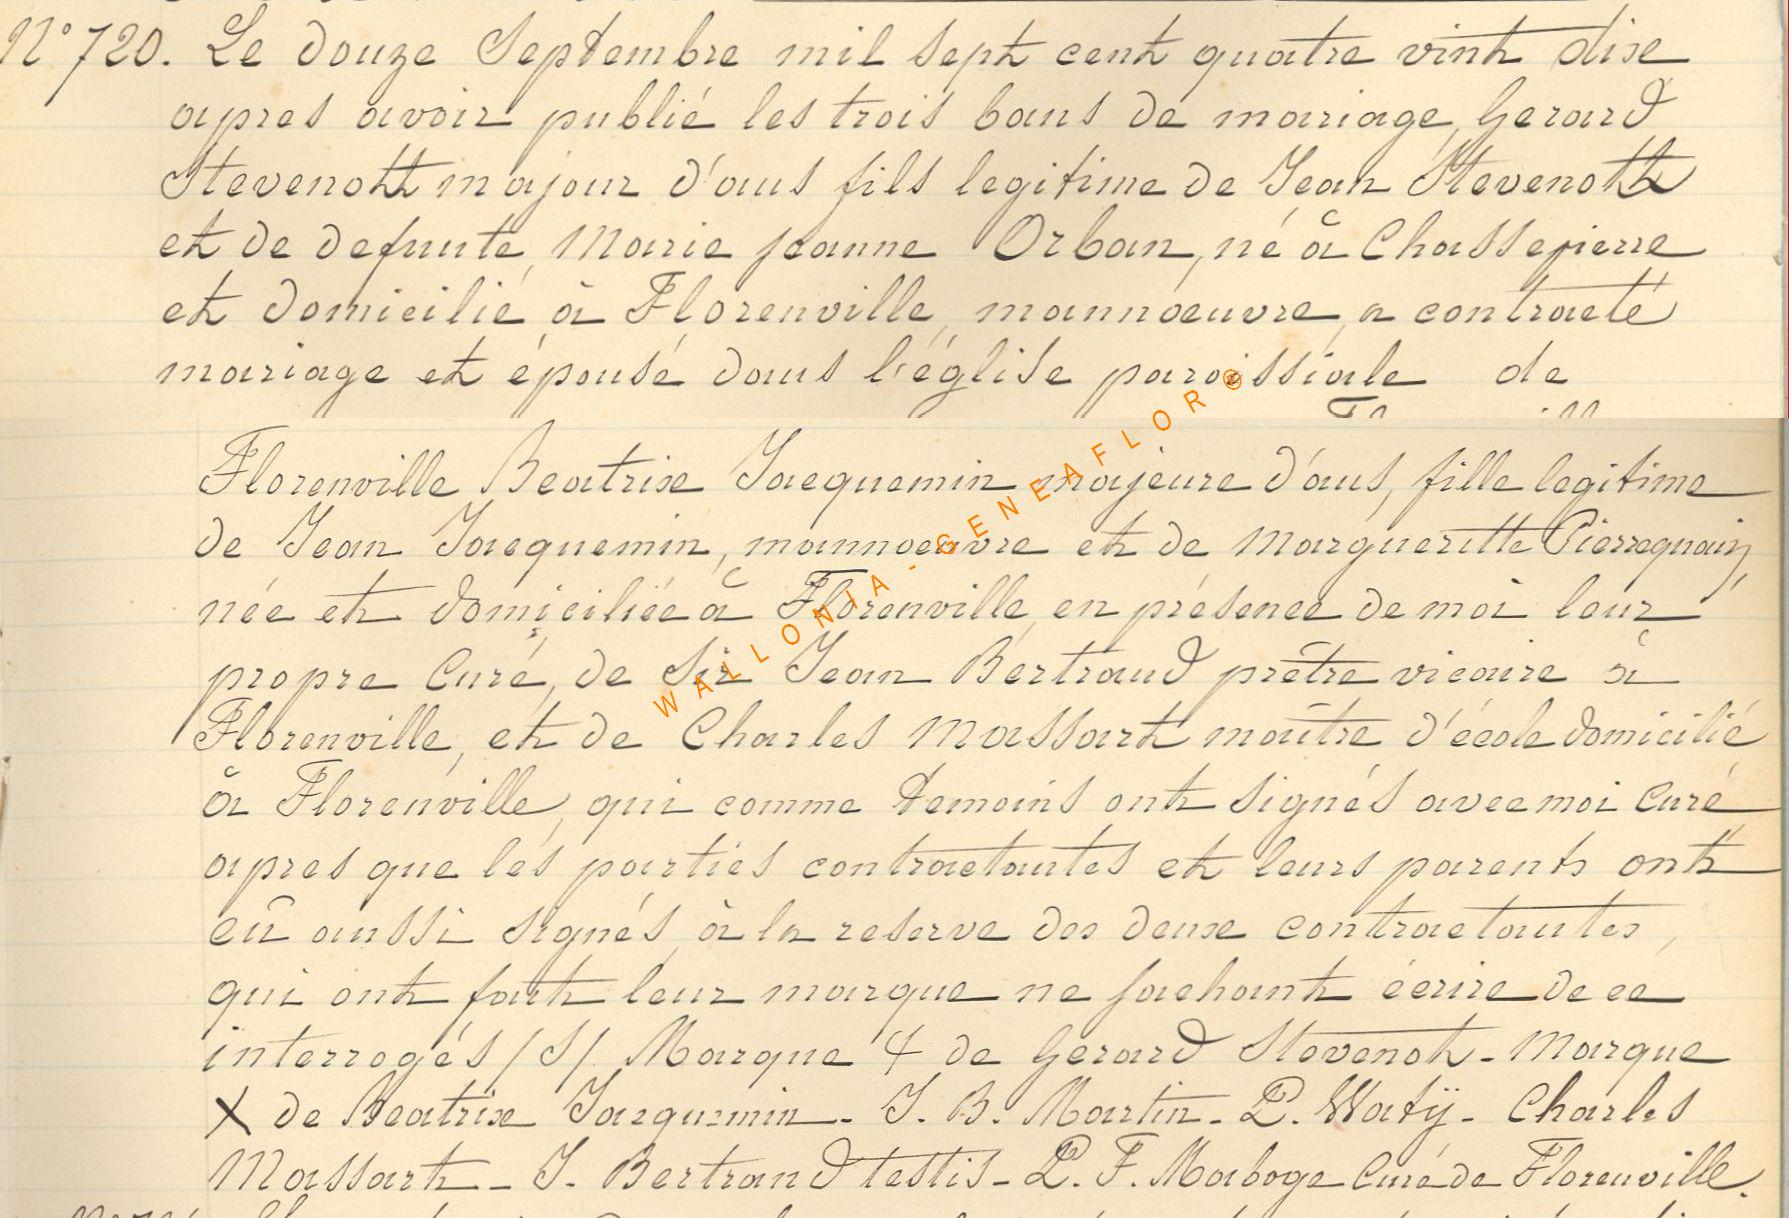 N° 720. Le douze Septembre mil sept cent quatre vint dixe
apres avoir publié les trois bans de mariage, Gerard
Stevenott majour d'ans fils legitime de Jean Stevenott
et de defunte, Marie jeanne Orban, né à Chassepierre
et domicilié à Florenville, mannoeuvre, a contracté
mariage et épousé dans l'église paroissiale de
Florenville Beatrixe Jacquemin majeure d'ans, fille legitime
de Jean Jacquemin, mannoeuvre et de Marguerítte Pierrequain,
née et domiciliée à Florenville, en présence de moi leur
propre Curé, de Sir Jean Bertrand prêtre vicaire à
Florenville, et de Charles Massart maître d'école domicilié
à Florenville, qui comme temoins ont signés avec moi Curé
apres que les parties contractantes et leurs parents ont
eû aussi signés, à la reserve des deuxe contractantes,
qui ont fait leur marque ne sachant écrire de ce
interrogés /S/ Marque + de Gerard Stevenot - Marque
X de Beatrixe Jacquemin - J. B. Martin - P. Watÿ - Charles
Massart - J. Bertrand testis - P. F. Maboge Curé de Florenville.
WALLONIA - GENEAFLOR ®